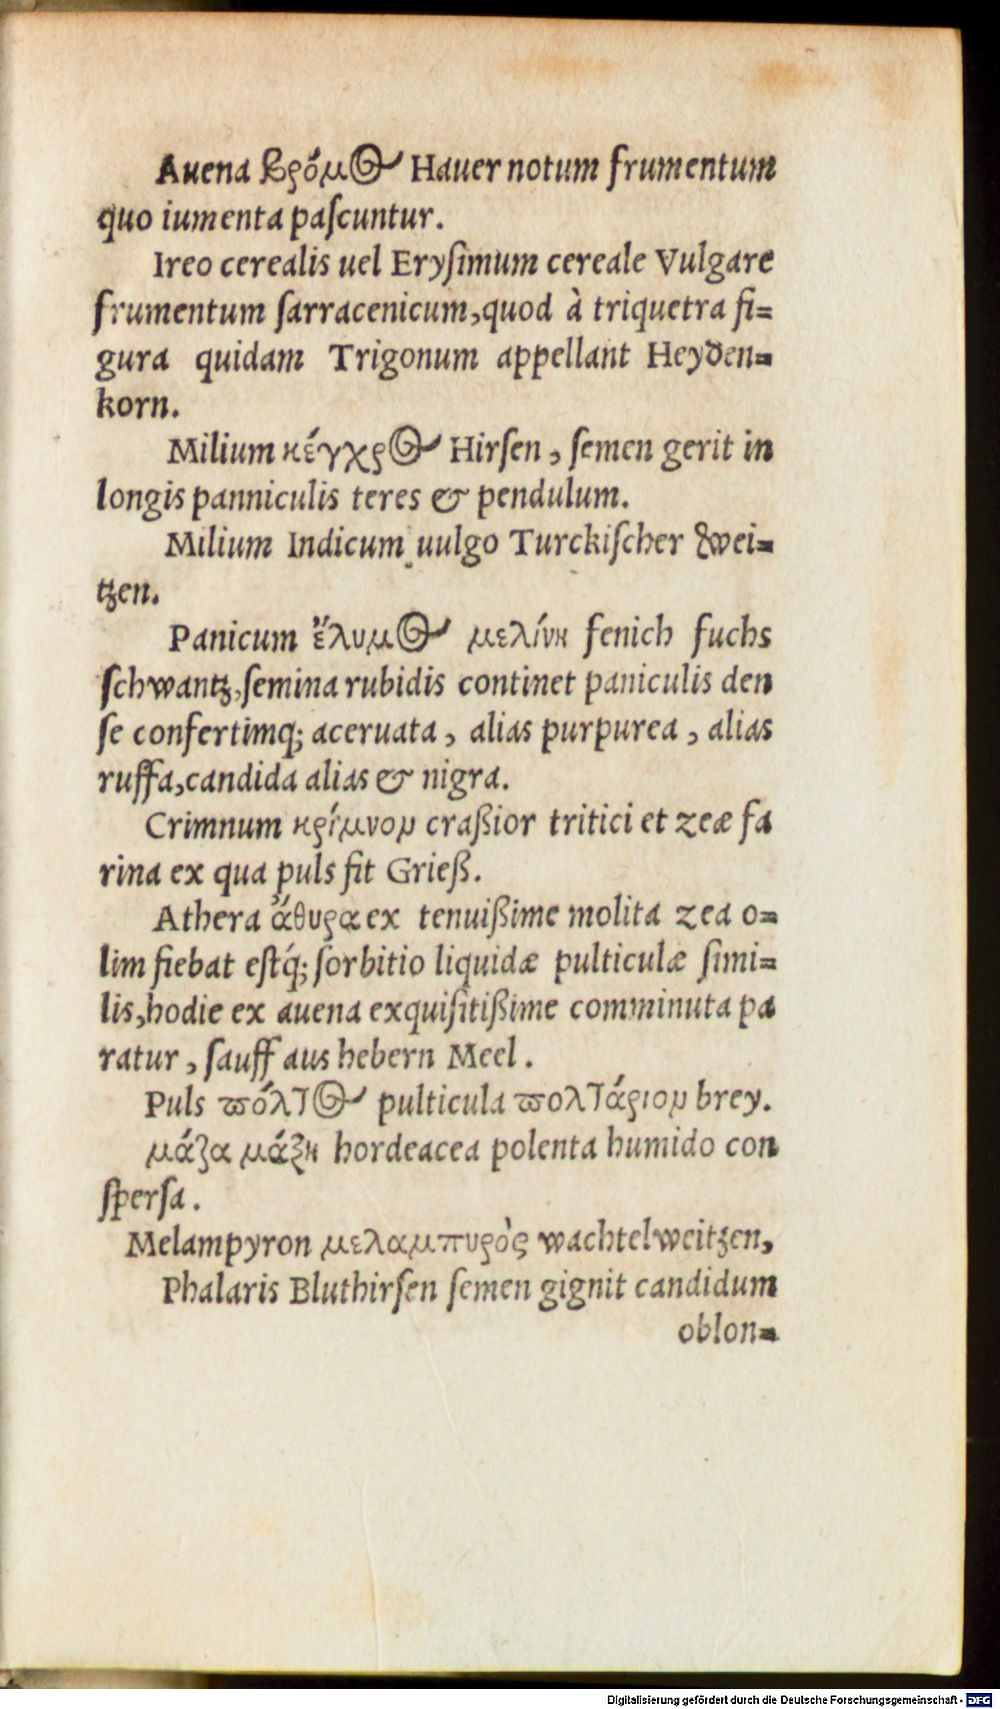 Auena βρόμος Hauer notum frumentum
quo iumenta paſcuntur.
Ireo cerealis uel Eryſimum cereale Vulgare
frumentum ſarracenicum, quod à triquetra fi=
gura quidam Trigonum appellant Heyden=
korn.
Milium κέγχρος Hirſen, ſemen gerit in
longis panniculis teres & pendulum.
Milium Indicum uulgo Turckiſcher Wei=
tzen.
Panicum ἔλυμος μελίνη fenich fuchs
ſchwantz, ſemina rubidis continet paniculis den
ſe confertimq; aceruata, alias purpurea, alias
ruffa, candida alias & nigra.
Crimnum κρίμνον craßior tritici et zeæ fa
rina ex qua puls fit Grieß.
Athera ἄθυρα ex tenuißime molita zea o=
lim fiebat eſtq́; ſorbitio liquidæ pulticulæ ſimi=
lis, hodie ex auena exquiſitißime comminuta pa
ratur, ſauff aus hebern Meel.
Puls πόλτος pulticula πολτάριον brey.
μάζα μάξη hordeacea polenta humido con
ſperſa.
Melampyron μελαμπυρὸς wachtelweitzen,
Phalaris Bluthirſen ſemen gignit candidum
oblon=
Digitalisierung gefördert durch die Deutsche Forschungsgemeinschaft - DFG